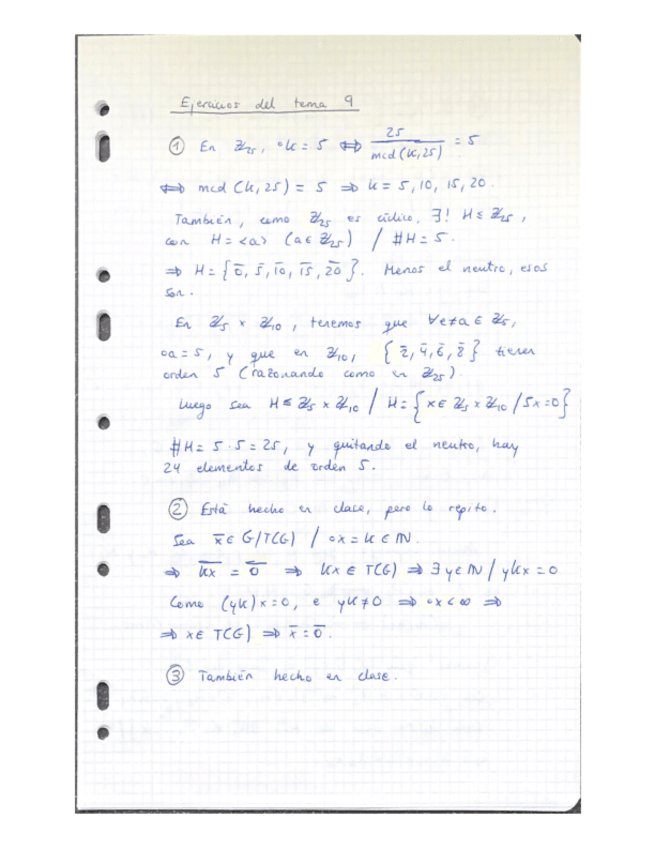 Ejercicios del tema 9
① En ℤ₂₅, ok = 5 ⟺ 25 / mcd(k,25) = 5
⟺ mcd(k,25) = 5 ⇒ k = 5, 10, 15, 20.
También, como ℤ₂₅ es cíclico, ∃! H ≤ ℤ₂₅,
con H = <a> (a ∈ ℤ₂₅) / #H = 5.
⇒ H = {0̄, 5̄, 1̄0̄, 1̄5̄, 2̄0̄}. Menos el neutro, esos
son.
En ℤ₅ × ℤ₁₀, tenemos que ∀e≠a ∈ ℤ₅,
oa = 5, y que en ℤ₁₀, {2̄, 4̄, 6̄, 8̄} tienen
orden 5 (razonando como en ℤ₂₅).
Luego sea H ≤ ℤ₅ × ℤ₁₀ / H = {x ∈ ℤ₅ × ℤ₁₀ / 5x = 0}
#H = 5·5 = 25, y quitando el neutro, hay
24 elementos de orden 5.
② Está hecho en clase, pero lo repito.
Sea x̄ ∈ G/T(G) / ox = k ∈ ℕ.
⇒ k̄x̄ = 0̄ ⇒ kx ∈ T(G) ⇒ ∃ y ∈ ℕ / ykx = 0
Como (yk)x = 0, e yk ≠ 0 ⇒ ox < ∞ ⇒
⇒ x ∈ T(G) ⇒ x̄ = 0̄.
③ También hecho en clase.